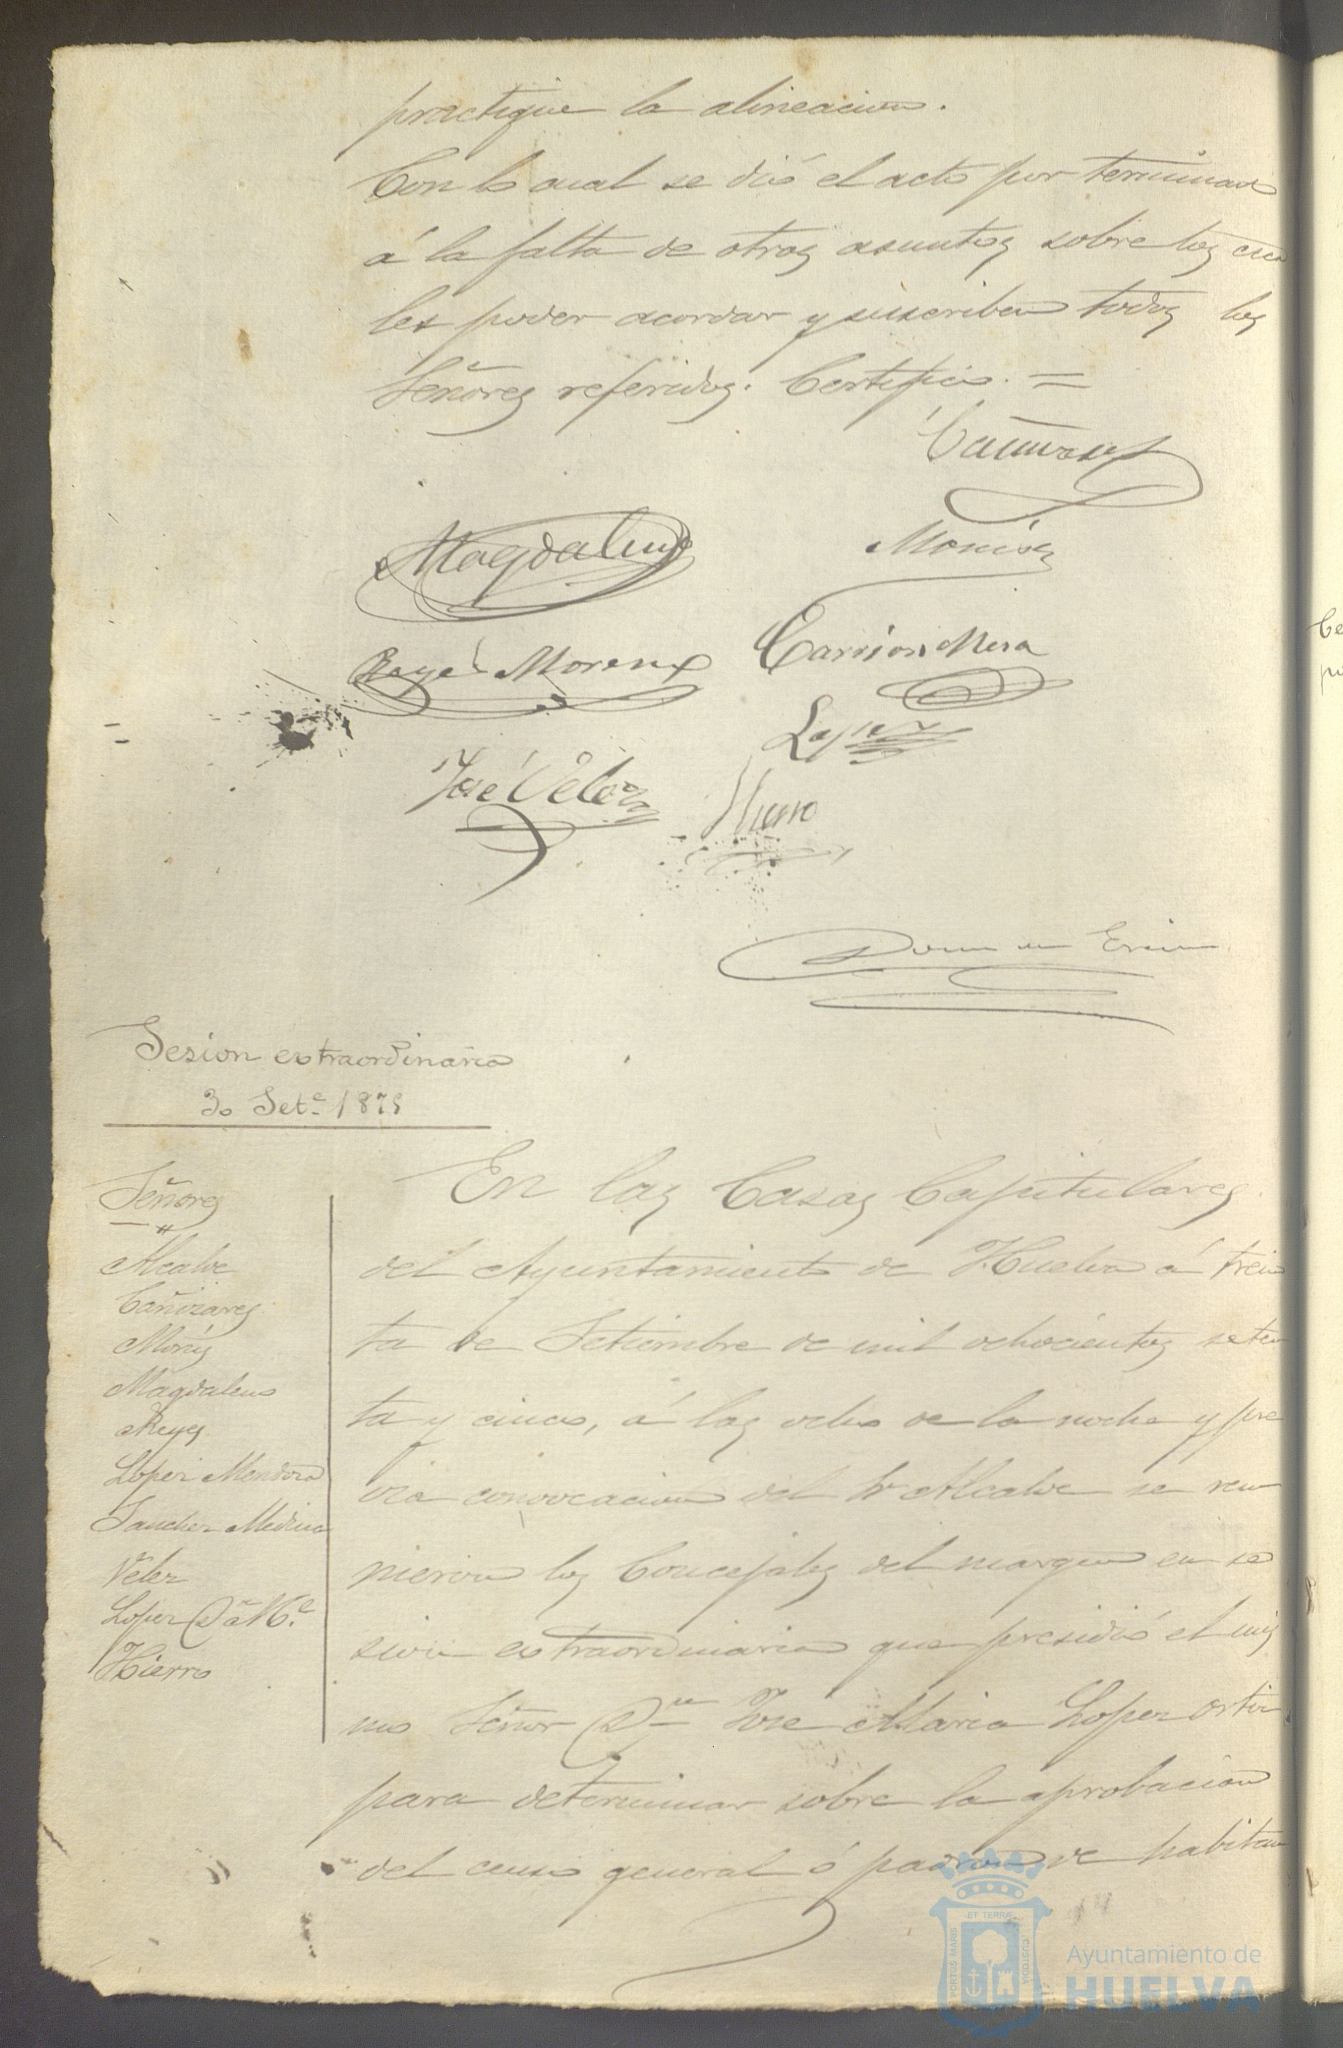 practique la alineacion.
Con lo cual se dió el acto por terminado
á la falta de otros asuntos sobre los cua
les poder acordar y suscriben todos los
Señores referidos. Certifico. =
Cañizares
Magdaleno
Monís
Reyes Moreno
Carrion Mesa
Lopez
José Velez
Hierro
Sesion extraordinaria
30 Set.e 1875
Señores
Alcalde
Cañizares
Monís
Magdaleno
Reyes
Lopez Mendoza
Sanchez Medina
Velez
Lopez D.n M.e
Hierro
En las Casas Capitulares
del Ayuntamiento de Huelva á trein
ta de Setiembre de mil ochocientos seten
ta y cinco, á las ocho de la noche y pre
via convocacion del Sr Alcalde se reu
nieron los Concejales del margen en se
sion extraordinaria que presidió el mis
mo Señor Dn José Maria Lopez Ortiz
para determinar sobre la aprobacion
del censo general ó padron de habitan
PORTUS MARIS ET TERRÆ CUSTODIA
Ayuntamiento de
HUELVA